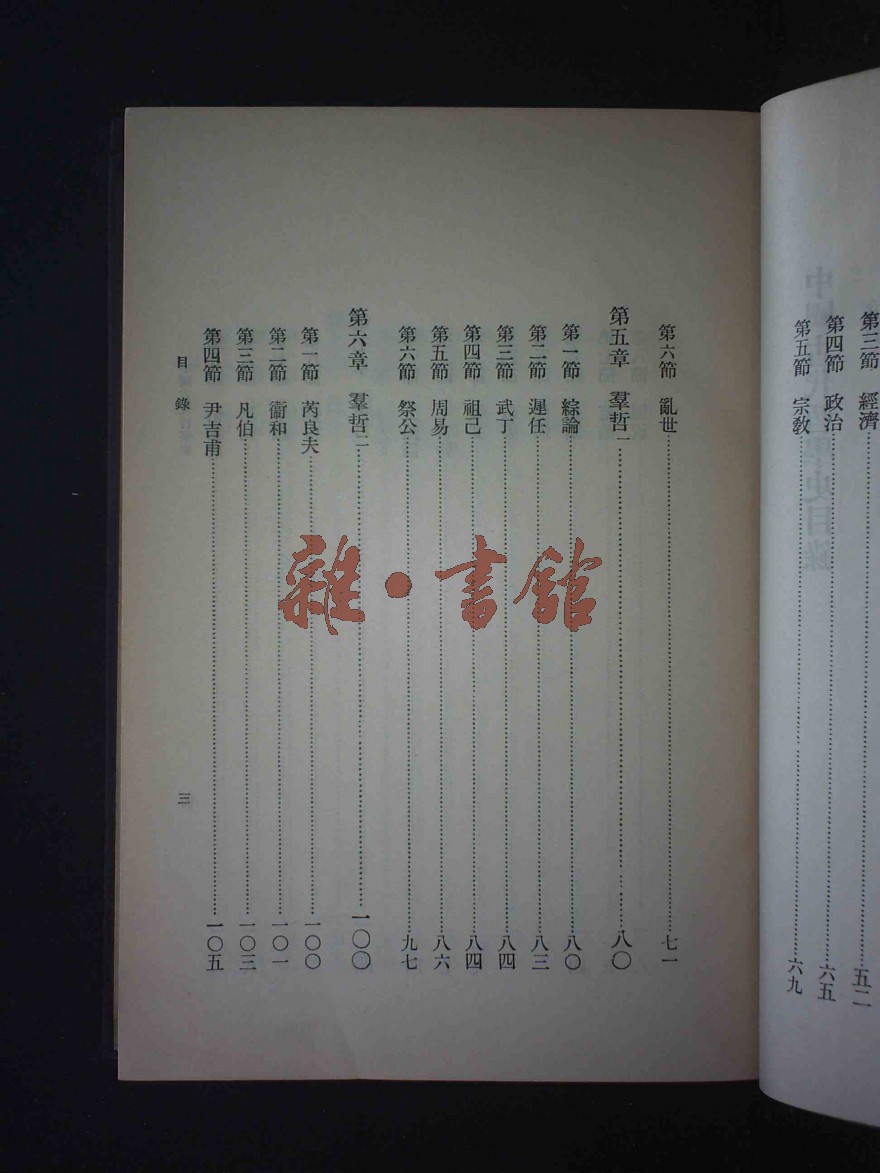 第三節 經濟 五二
第四節 政治 六五
第五節 宗教 六九
第六節 亂世 七一
第五章 羣哲一 八〇
第一節 綜論 八〇
第二節 遲任 八三
第三節 武丁 八四
第四節 祖己 八四
第五節 周易 八六
第六節 祭公 九七
第六章 羣哲二 一〇〇
第一節 芮良夫 一〇〇
第二節 衞和 一〇一
第三節 凡伯 一〇三
第四節 尹吉甫 一〇五
目錄 三
雜·書館